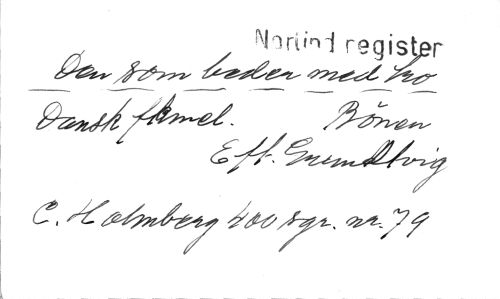 Norlind register
Den som beder med tro
Dansk f mel. Bönen
Eft. Grundtvig
C. Holmberg 400 sgr. nr. 79